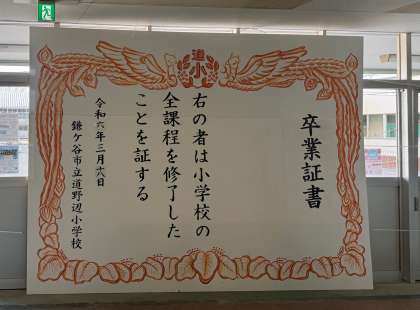 卒業証書
右の者は小学校の
全課程を修了した
ことを証する
令和六年三月六日
鎌ケ谷市立道野辺小学校
道小